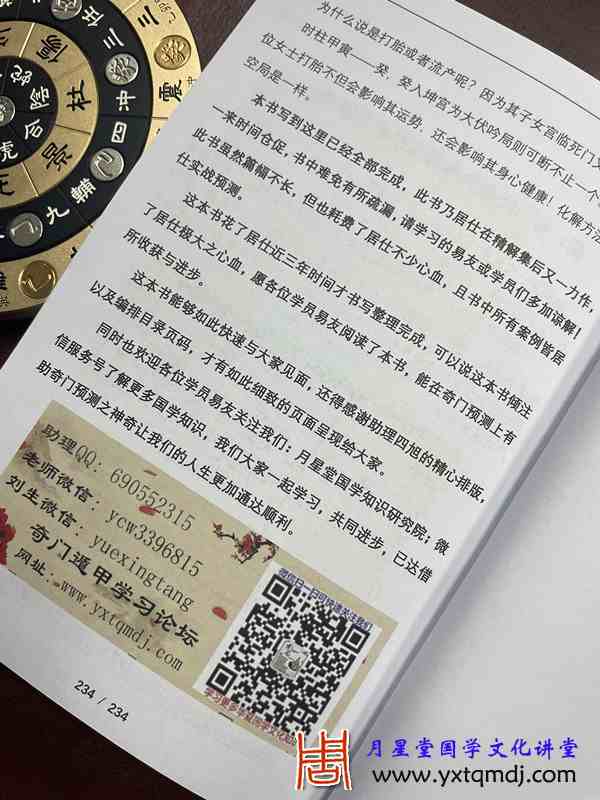 为什么说是打胎或者流产呢？因为其子女宫临死门又
时柱甲寅——癸，癸入坤宫为大伏吟局则可断不止一个
位女士打胎不但会影响其运势，还会影响其身心健康！化解方法
空局是一样。
本书写到这里已经全部完成，此书乃居仕在精解集后又一力作，
一来时间仓促，书中难免有所疏漏，请学习的易友或学员们多加谅解！
此书虽然篇幅不长，但也耗费了居仕不少心血，且书中所有案例皆居
仕实战预测。
这本书花了居仕近三年时间才书写整理完成，可以说这本书倾注
了居仕极大之心血，愿各位学员易友阅读了本书，能在奇门预测上有
所收获与进步。
这本书能够如此快速与大家见面，还得感谢助理四旭的精心排版，
以及编排目录页码，才有如此细致的页面呈现给大家。
同时也欢迎各位学员易友关注我们：月星堂国学知识研究院；微
信服务号了解更多国学知识，我们大家一起学习，共同进步，已达借
助奇门预测之神奇让我们的人生更加通达顺利。
助理QQ：690552315
老师微信：ycw3396815
刘生微信：yuexingtang
奇门遁甲学习论坛
网址：www.yxtqmdj.com
微信扫一扫可快速关注我们
234 / 234
月星堂国学文化讲堂
www.yxtqmdj.com
杜
景
震
四
冲
輔
九
三
陰
虎